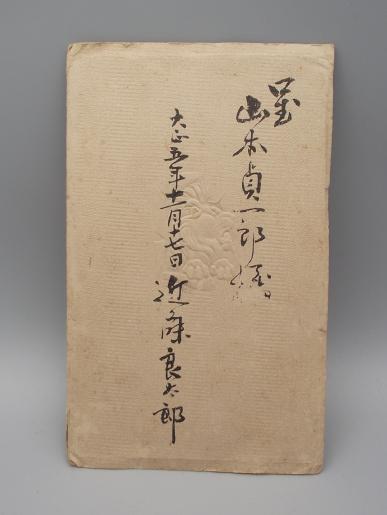 呈
山本貞一郎様
大正五年十一月十七日
近藤良太郎